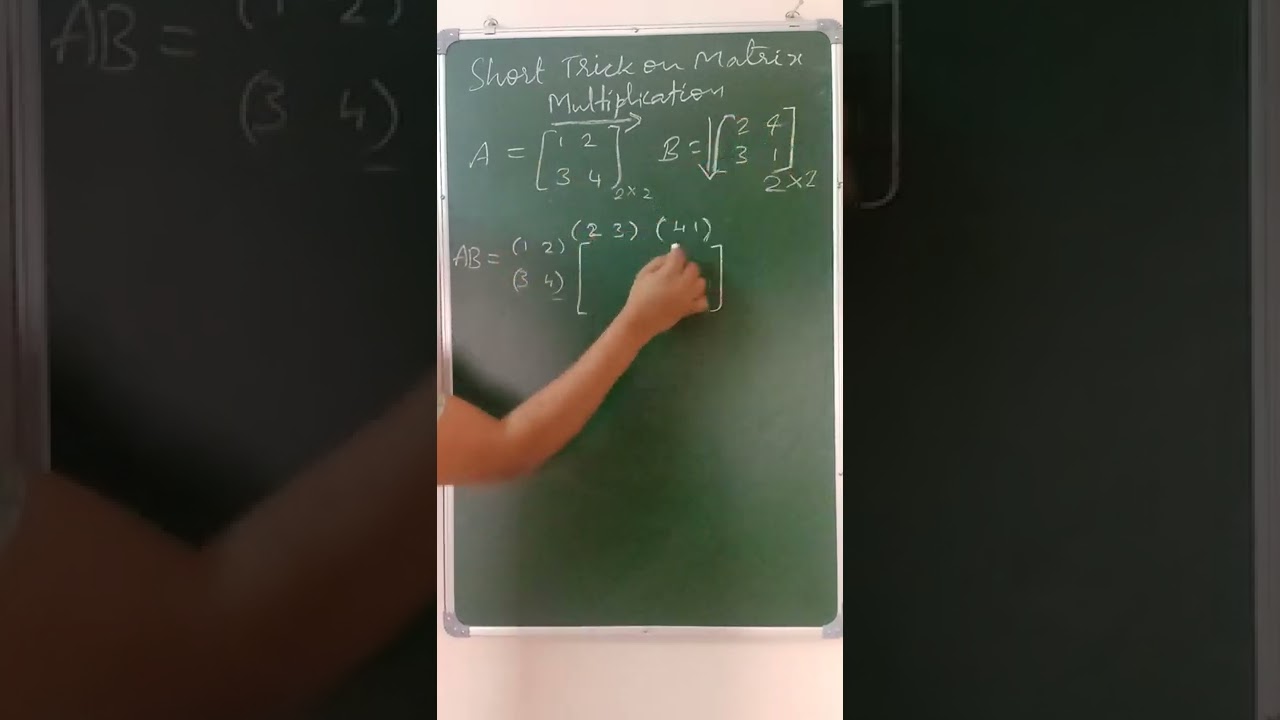 Short Trick on Matrix
Multiplication
A = [1 2
3 4] 2×2
B = [2 4
3 1] 2×2
(2 3) (4 1)
AB = (1 2)
(3 4) [ ]
AB = (1 2)
(3 4)